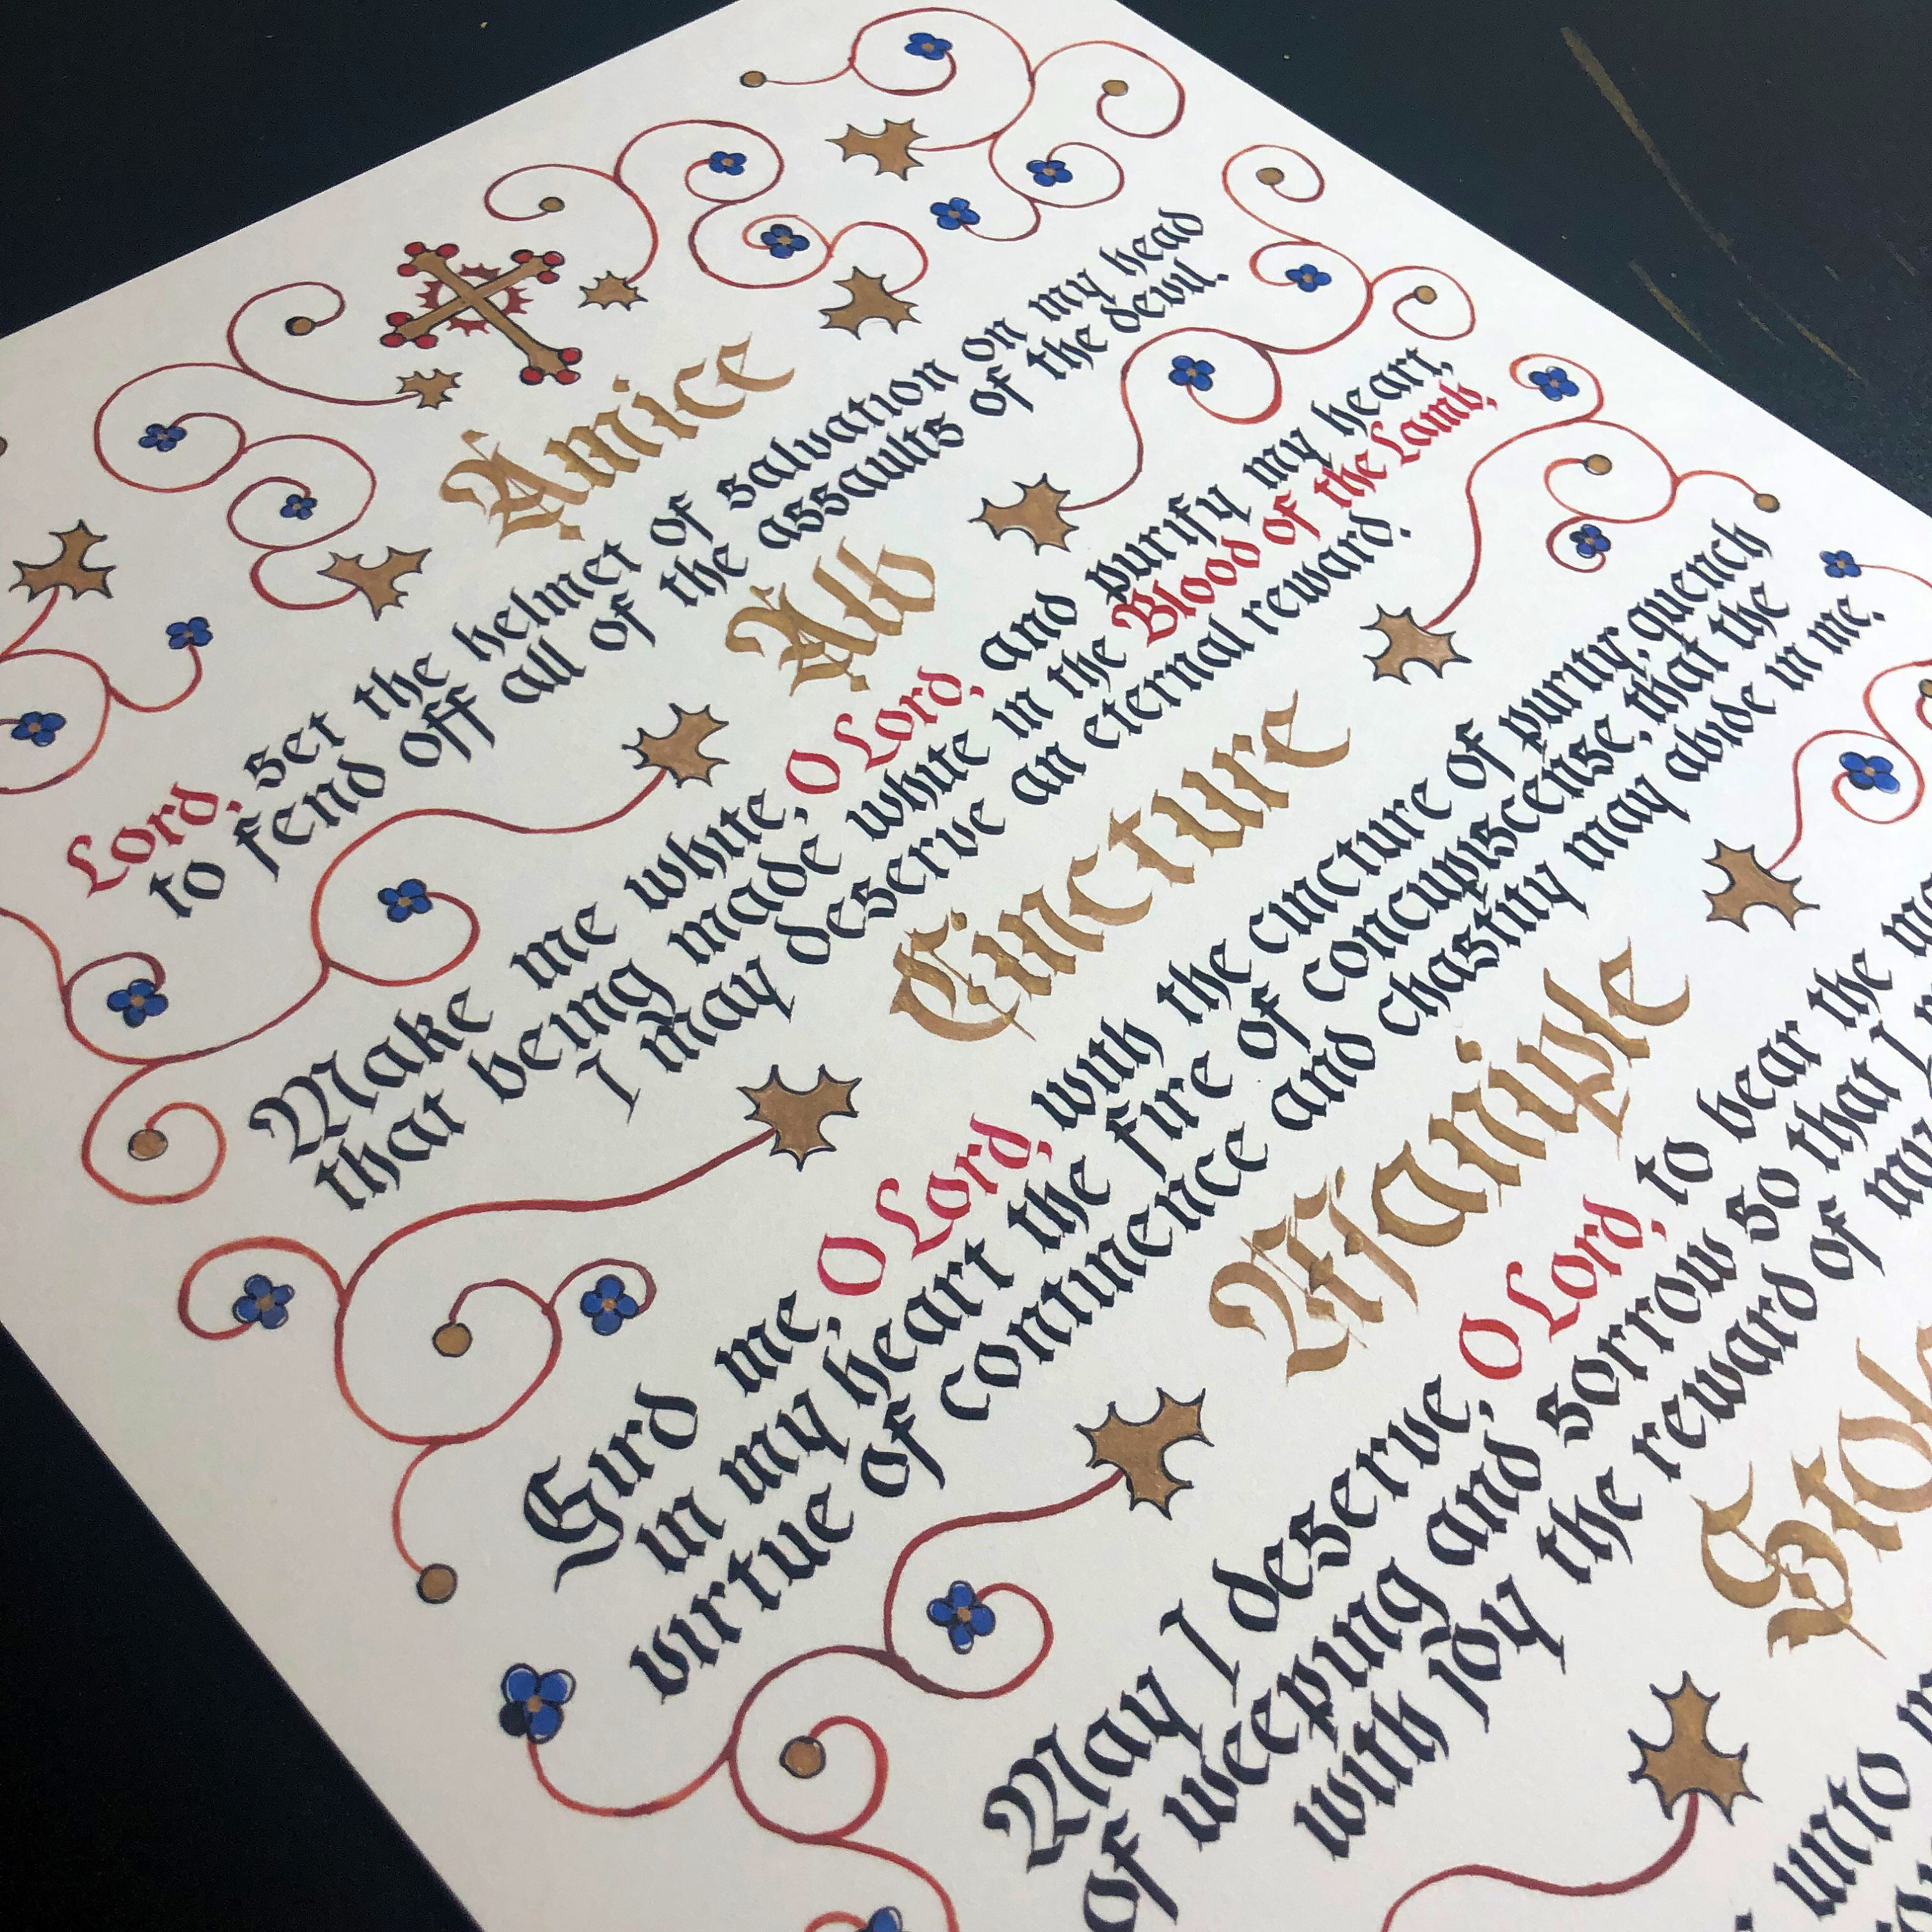 Amice
Lord, set the helmet of salvation on my head
to fend off all of the assaults of the devil.
Alb
Make me white, O Lord, and purify my heart,
that being made white in the Blood of the Lamb,
I may deserve an eternal reward.
Cincture
Gird me, O Lord, with the cincture of purity, quench
in my heart the fire of concupiscense, that the
virtue of continence and chastity may abide in me.
Maniple
May I deserve, O Lord, to bear the
of weeping and sorrow so that I
with joy the reward of my
unto